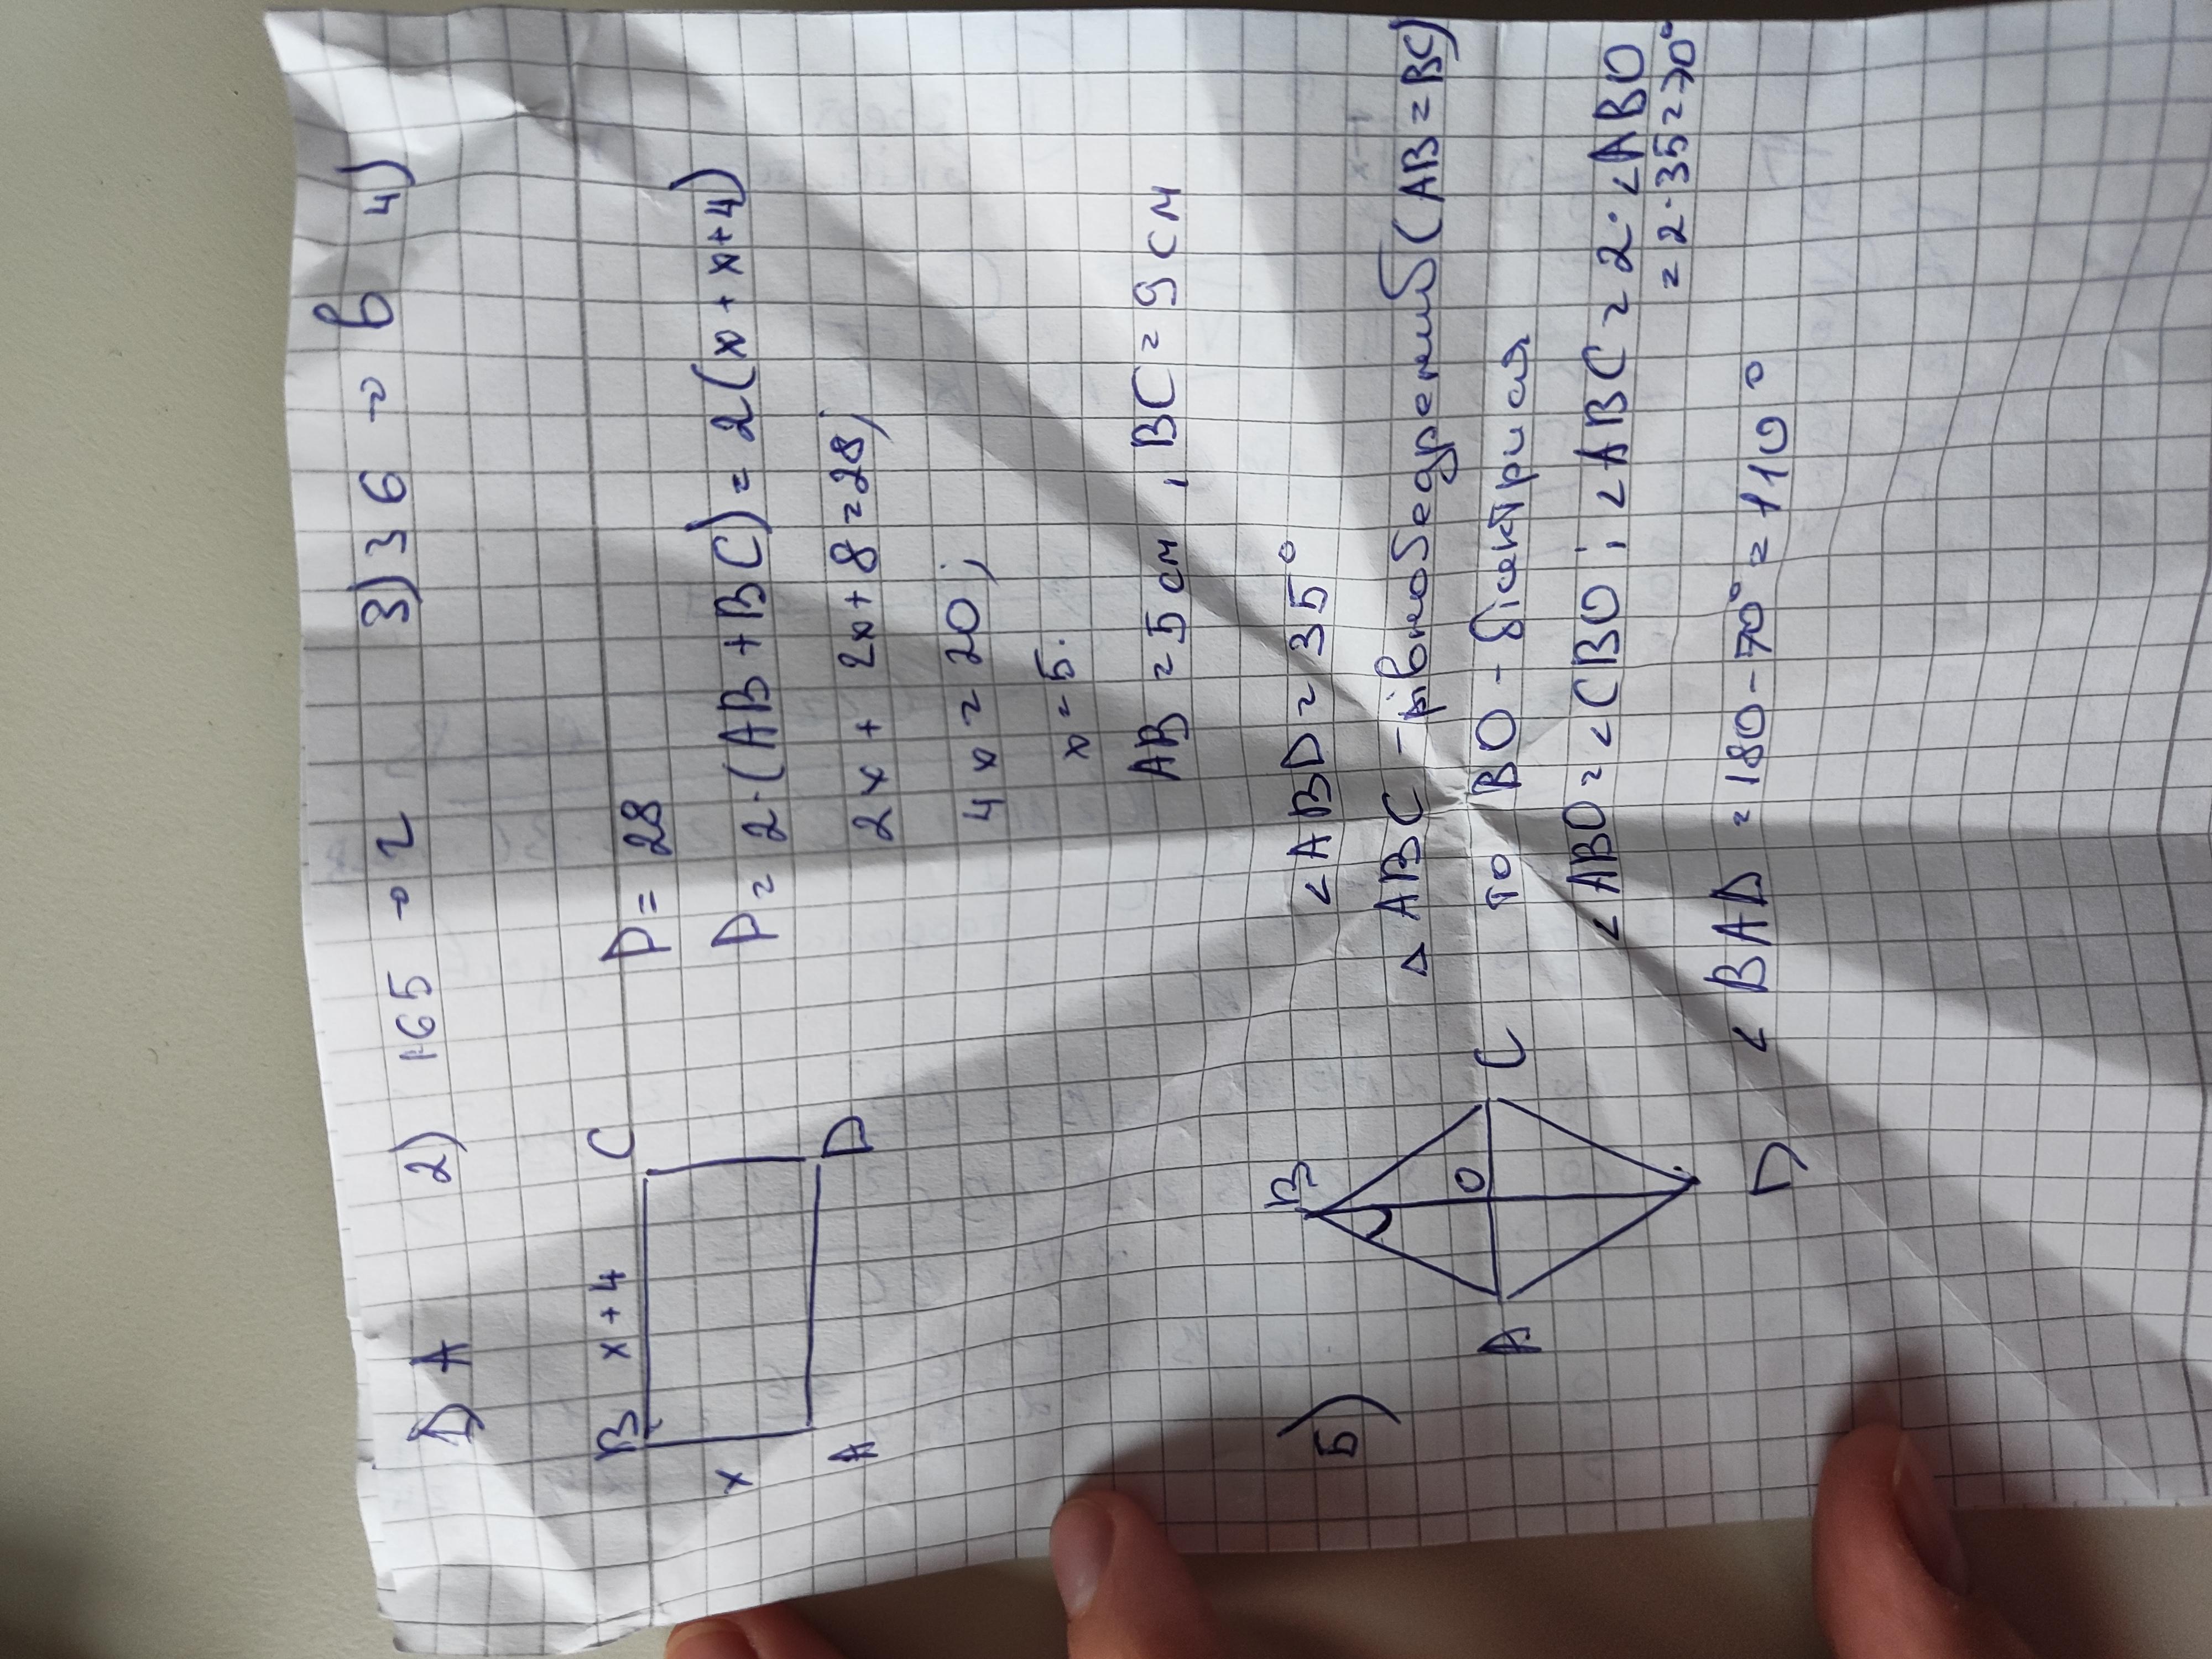 1) A 2) 165 → 2 3) 36 → в 4)
B x+4 C
x
A D
P = 28
P = 2·(AB+BC) = 2(x+x+4)
2x + 2x+8=28;
4x=20;
x=5.
AB = 5 см, BC = 9 см
5)
B
A O C
D
<ABD = 35°
△ ABC - рівнобедрений (AB=BC)
то BO - бісектриса
<ABO = <CBO; <ABC = 2·<ABO
= 2·35=70°
<BAD = 180-70° = 110°